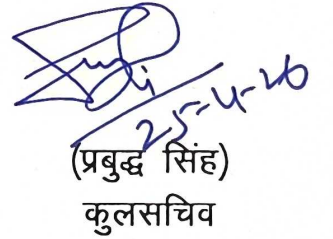 25-4-26
(प्रबुद्ध सिंह)
कुलसचिव